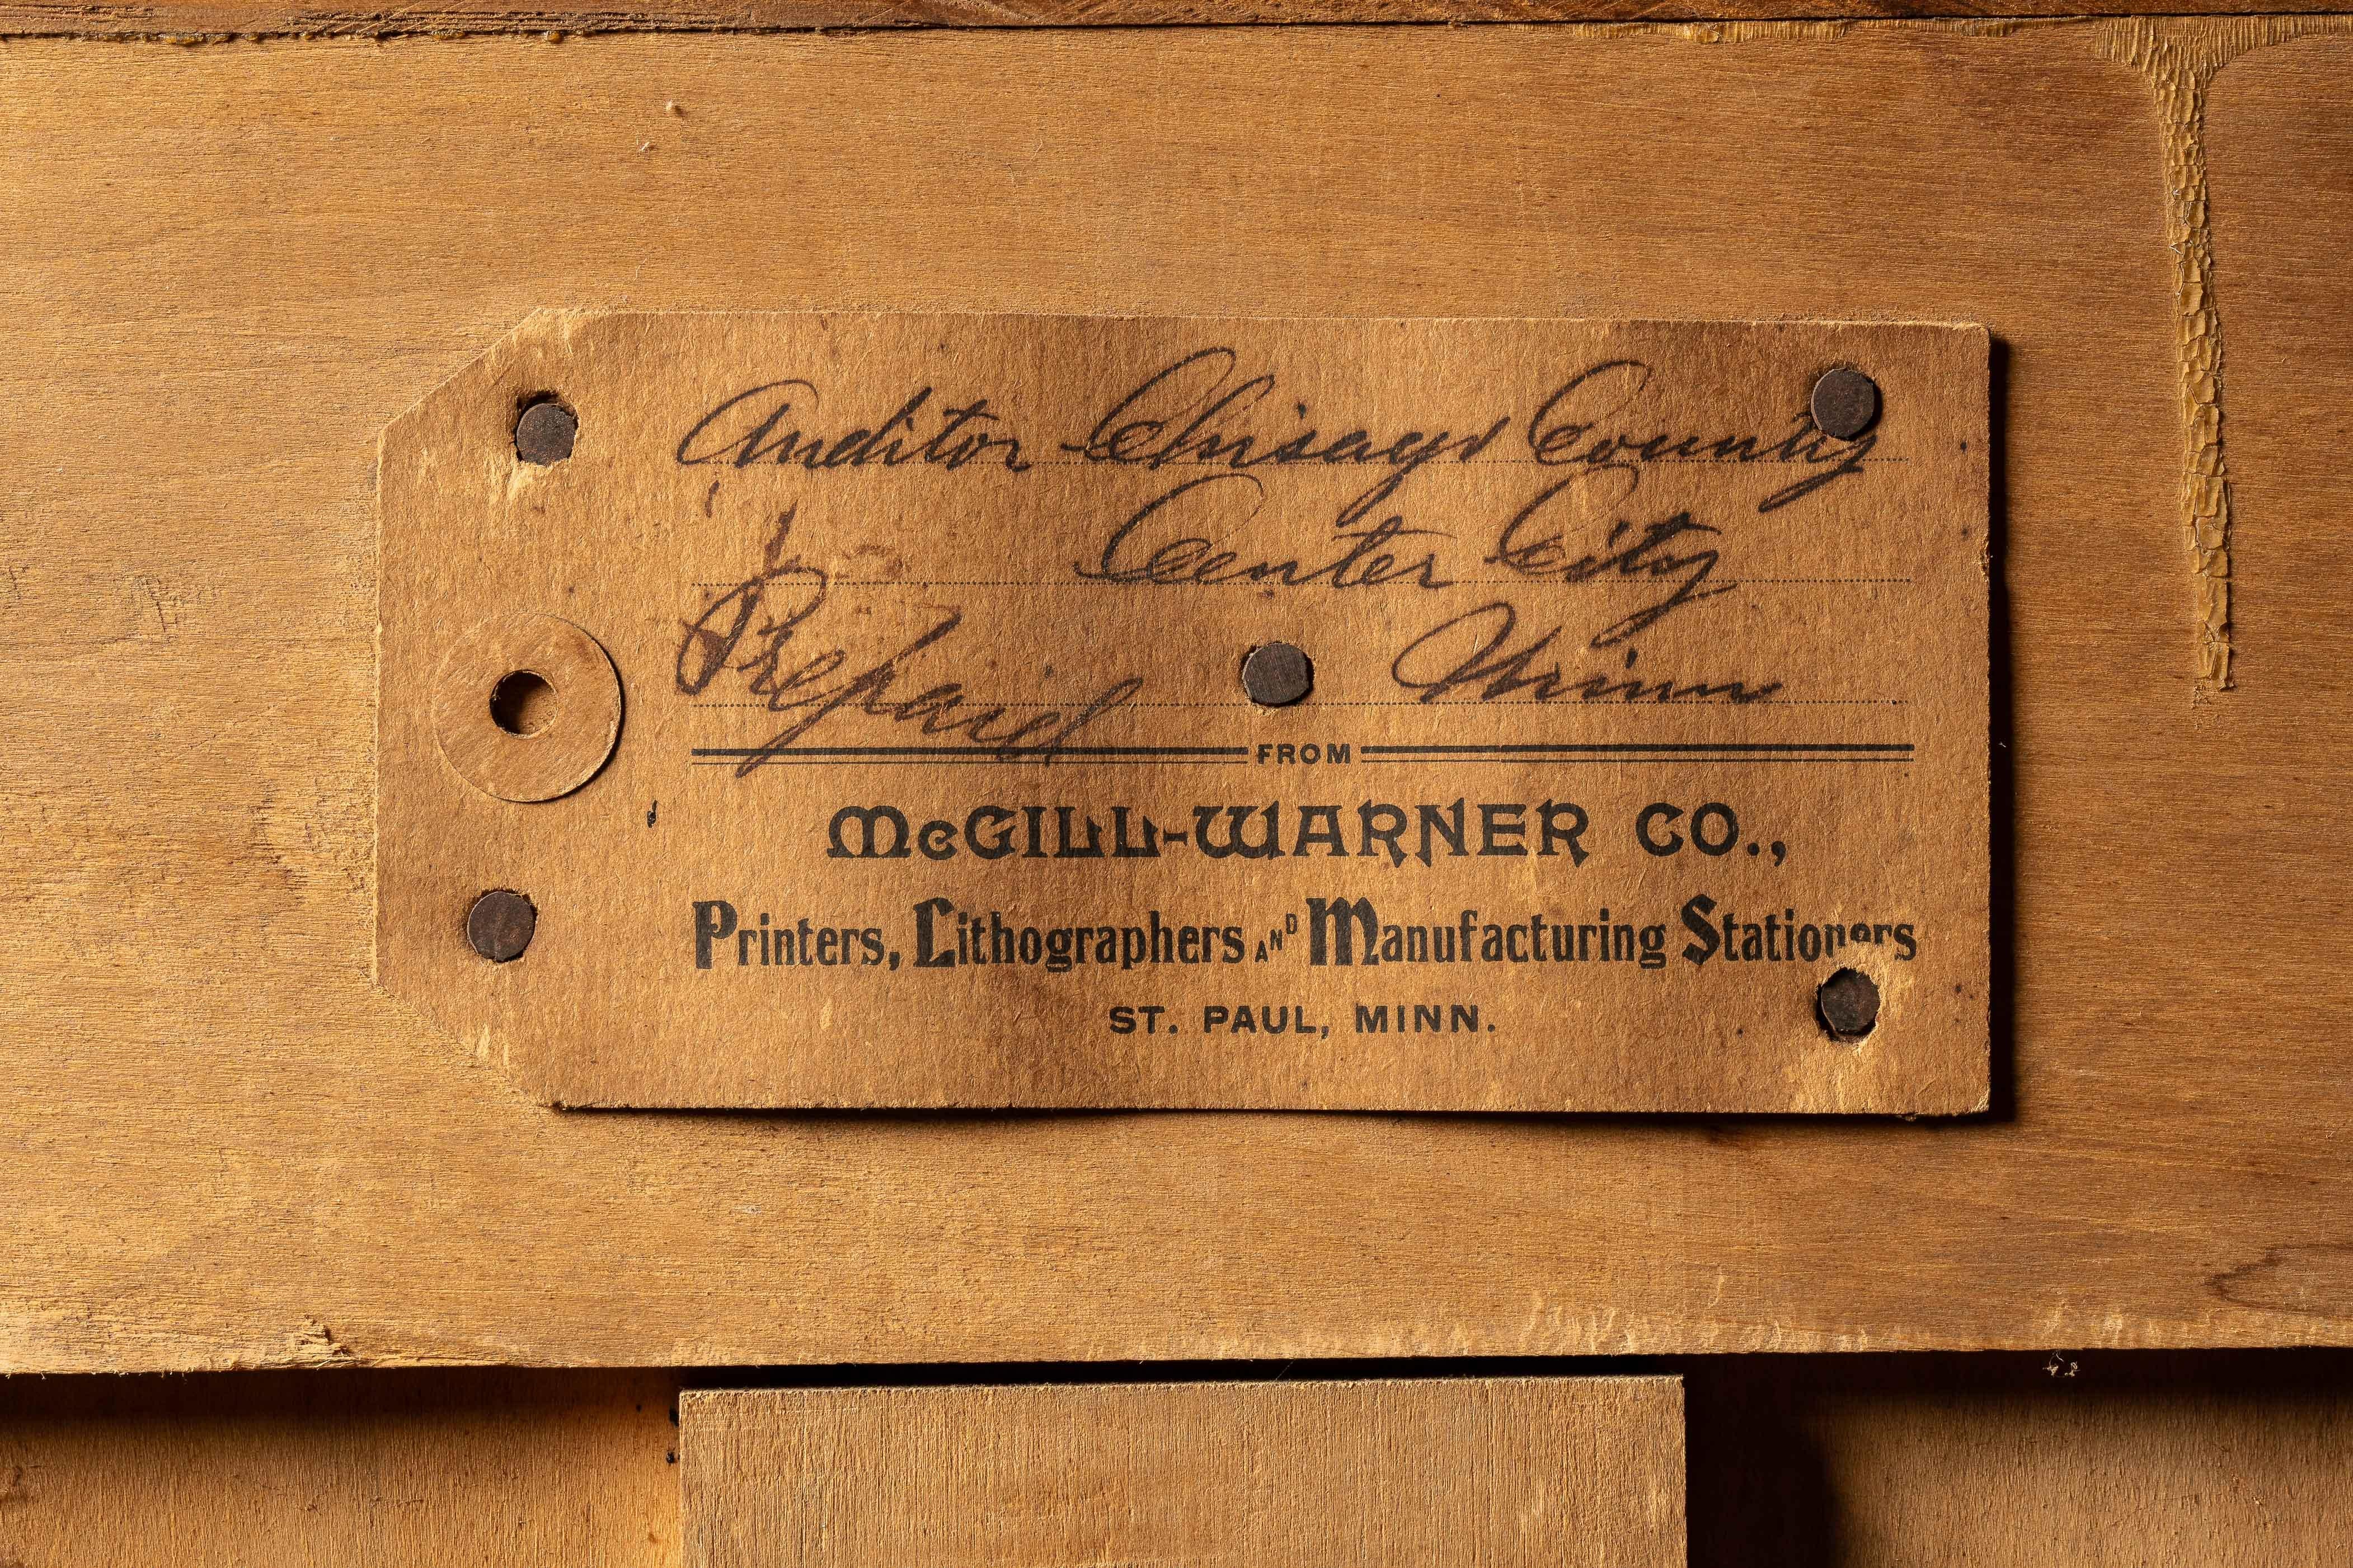 Auditor Chisago County
Center City
Prepaid Minn
FROM
McGILL-WARNER CO.,
Printers, Lithographers AND Manufacturing Stationers
ST. PAUL, MINN.